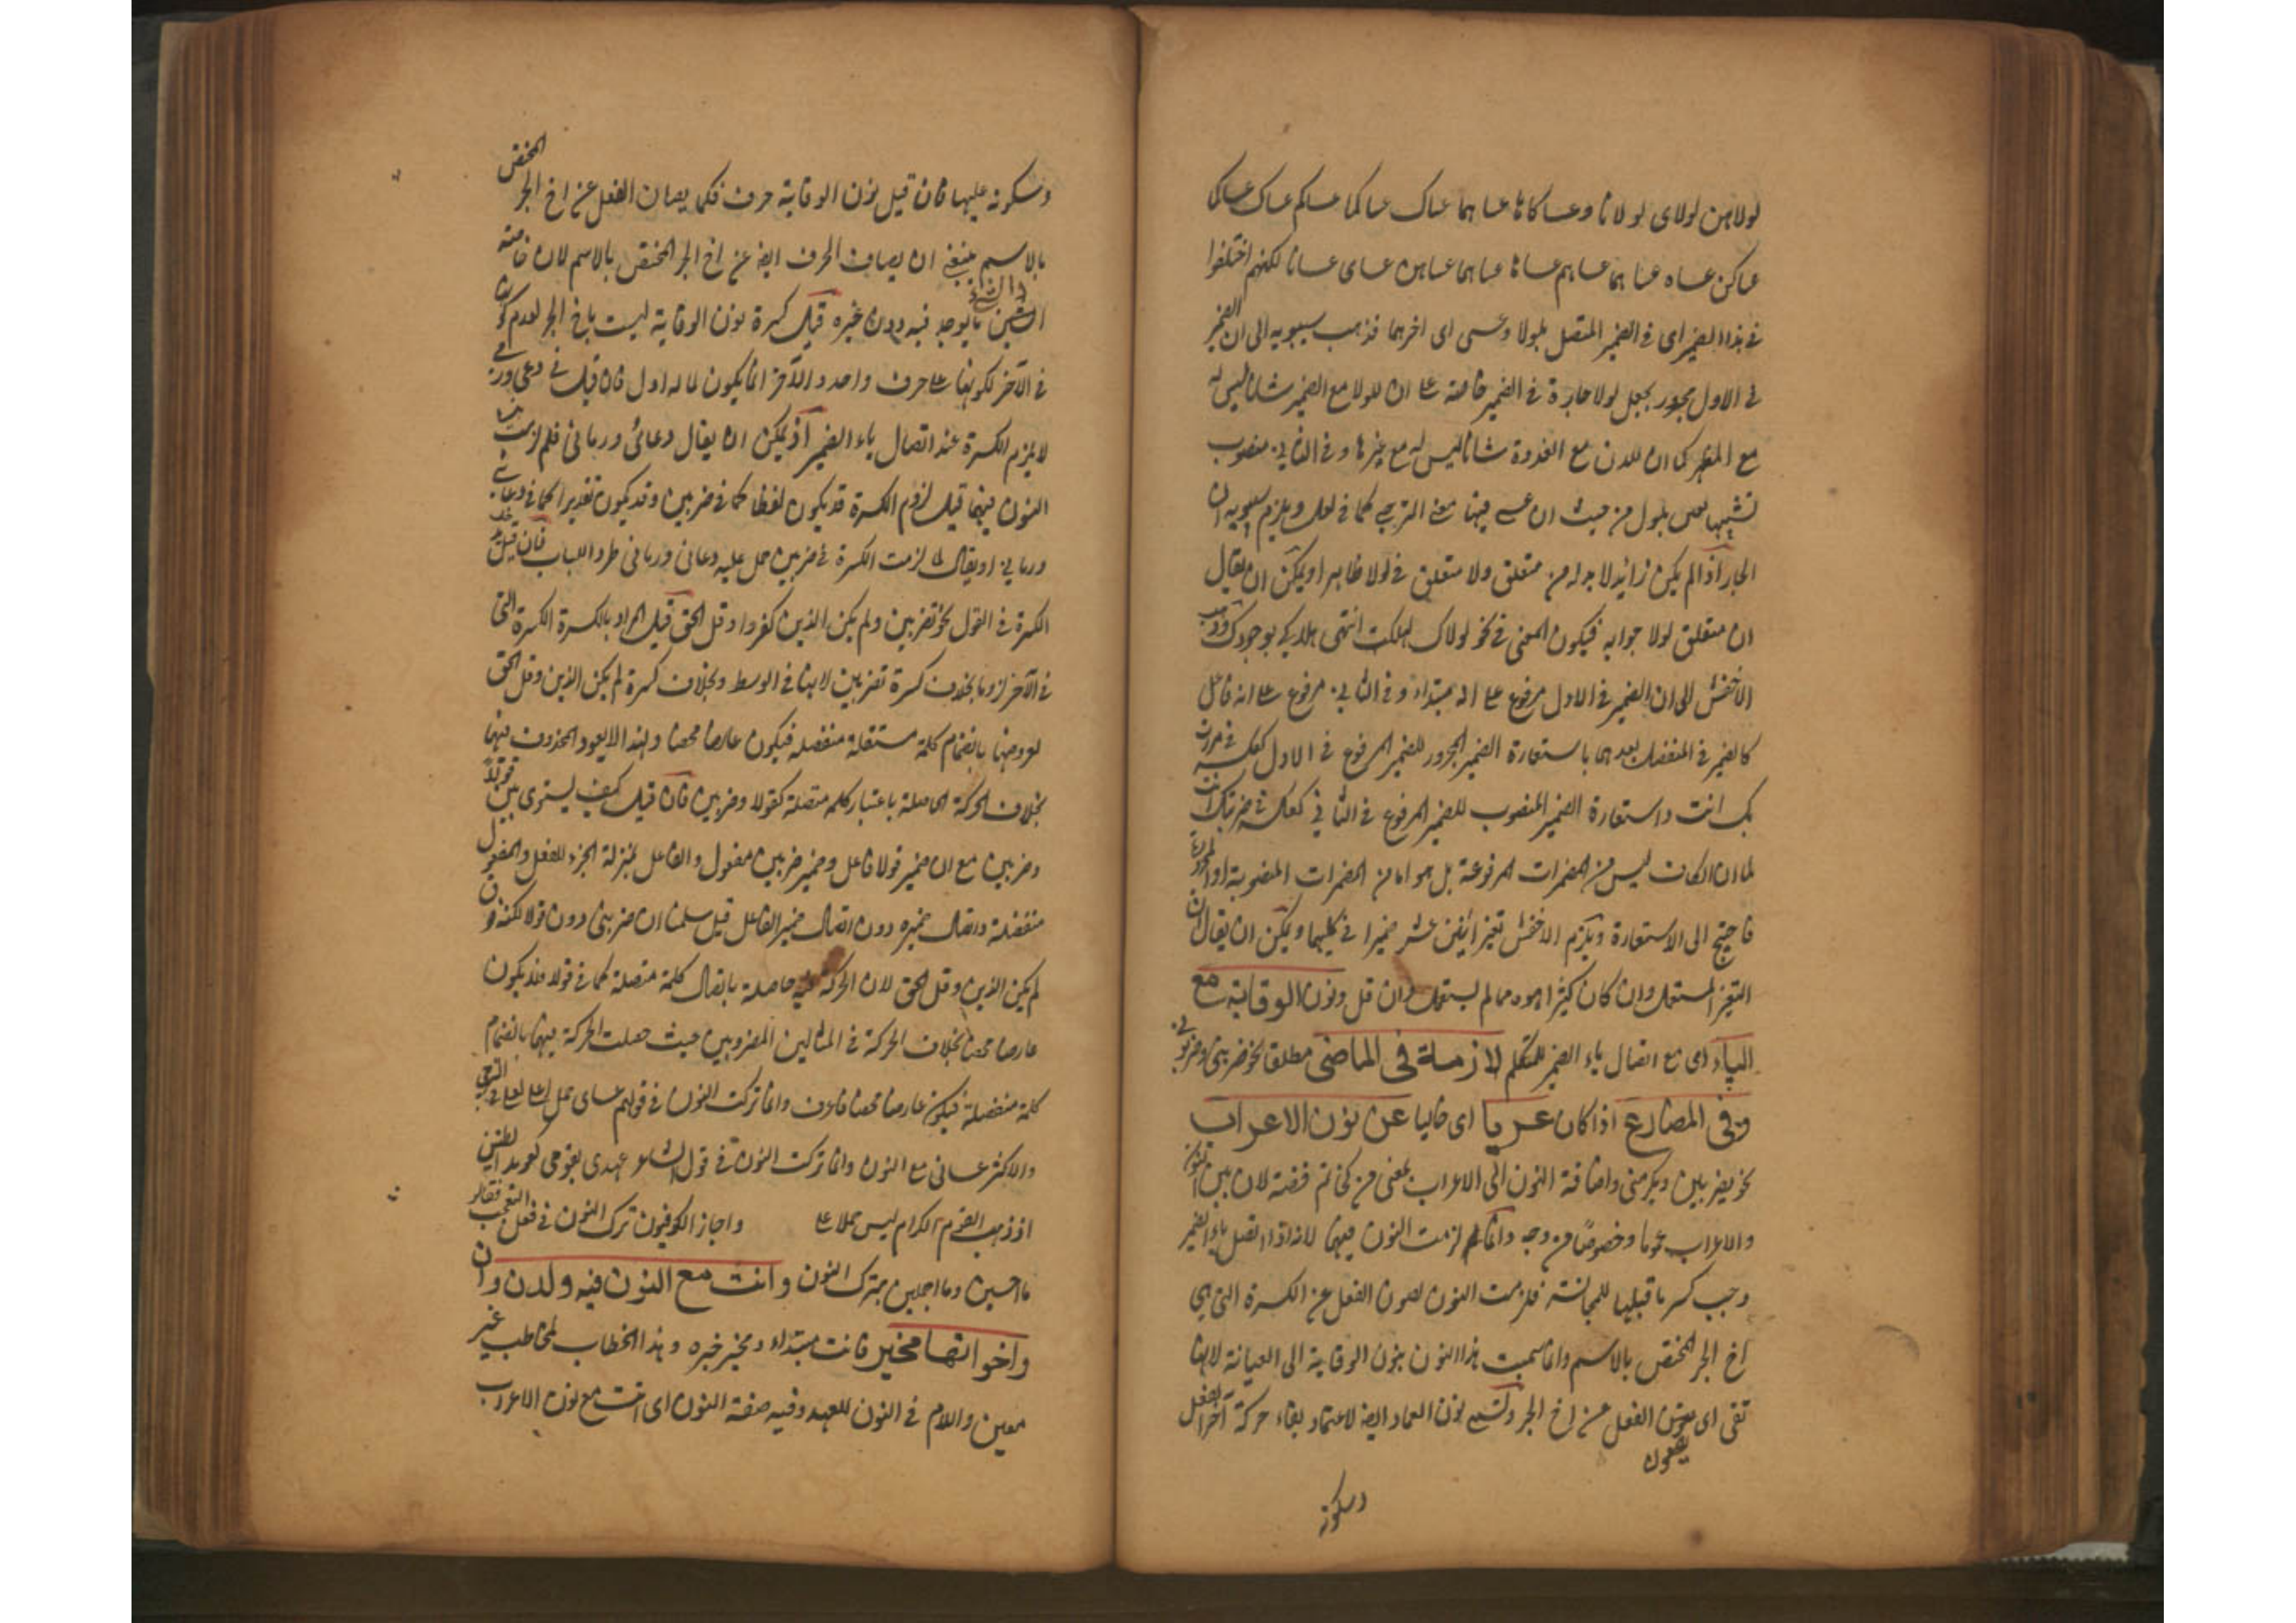 لولاهن لولای لولانا وعساکا عسا هما عساک عساکما عساکم عساک عساکما
عساکن عساه عسا هما عساهم عساها عساهما عساهن عسای عسانا لکنهم اختلفوا
فی هذا الضمیر ای فی الضمیر المتصل بلولا وعسی ای اخرهما فذهب سیبویه الی ان الضمیر
فی الاول مجرور بجعل لولا جارة فی الضمیر خاصة علی ان للولا مع الضمیر شانا لیس له
مع المظهر کما ان للدن مع الغدوة شانا لیس له مع غیرها وفی الثانی منصوب
تشبیها لعسی بلعل من حیث ان عسی فیها معنی الترجی کما فی لعل ویلزم سیبویه ان
الجار اذا لم یکن زائدا لا بد له من متعلق ولا متعلق فی لولا ظاهرا ویمکن ان یقال
ان متعلق لولا جوابه فیکون المعنی فی نحو لولاک لهلکت انتهی هلاکی بوجودک وذهب
الاخفش الی ان الضمیر فی الاول مرفوع علی انه مبتداء وفی الثانی مرفوع علی انه فاعل
کالضمیر فی المنفصل بعدهما باستعارة الضمیر المجرور للضمیر المرفوع فی الاول کعکسه فی مررت
بک انت واستعارة الضمیر المنصوب للضمیر المرفوع فی الثانی کعکسه فی ضربتک انت
لما ان الکاف لیس من المضمرات المرفوعة بل هو اما من المضمرات المنصوبة او المجرورة
فاحتیج الی الاستعارة ویلزم الاخفش تغیر اثنین عشر ضمیرا فی کلیهما ویمکن ان یقال ان
التغیر المستعمل وان کان کثیرا اهون مما لم یستعمل وان قل ونون الوقایة مع
الیاء ای مع اتصال یاء الضمیر للمتکلم لازمة فی الماضی مطلقا نحو ضربنی وضربونی
وفی المضارع اذا کان عریا ای خالیا عن نون الاعراب
نحو یضربنی ویکرمنی واضافة النون الی الاعراب بمعنی من کخاتم فضة لان بین النون
والاعراب عموما وخصوصا من وجه وانما لزمت النون فیهما لانه اذا اتصل یاء الضمیر
وجب کسر ما قبلها للمجانسة فلزمت النون لصون الفعل عن الکسرة التی هی
اخ الجر المختص بالاسم وانما سمیت هذا النون بنون الوقایة الی الصیانة لانها
تقی ای یصون الفعل عن اخ الجر وتسمی نون العماد ایضا لاعتماد بقاء حرکة آخر الفعل
وسکونه
وسکونه علیها فان قیل نون الوقایة حرف فکما یصان الفعل عن اخ الجر المختص
بالاسم ینبغی ان یصان الحرف ایضا عن اخ الجر المختص بالاسم لان خاصة
الشیئ ما یوجد فیه دون غیره قیل کسرة نون الوقایة لیست باخ الجر لعدم کونها
فی الآخر لکونها علی حرف واحد والآخر انما یکون لما له اول فان قیل فی دعی ورمی
لا یلزم الکسرة عند اتصال یاء الضمیر اذ یمکن ان یقال دعائی ورمانی فلم لزمت
النون فیهما قیل لزوم الکسرة قد یکون لفظا کما فی ضربنی وقد یکون تقدیرا کما فی دعانی
ورمانی او یقال لما لزمت الکسرة فی ضربنی حمل علیه دعانی ورمانی طردا للباب فان قیل
الکسرة فی القول نحو تضربین ولم یکن الذین کفروا وقل الحق قیل المراد بالکسرة الکسرة التی
فی الآخر لزوما بخلاف کسرة تضربین لانها فی الوسط وبخلاف کسرة لم یکن الذین وقل الحق
لعروضها بانضمام کلمة مستقلة منفصلة فیکون عارضا محضا ولهذا لا یعود المحذوف فیها
بخلاف الحرکة الحاصلة باعتبار کلمة متصلة کقولا وضربنی فان قیل کیف یستوی بین قولا
وضربنی مع ان ضمیر قولا فاعل وضمیر ضربنی مفعول والفاعل بمنزلة الجزء للفعل والمفعول
منفصلة واتصال ضمیره دون اتصال ضمیر الفاعل قیل سلمنا ان ضربنی دون قولا لکنه فوق
لم یکن الذین وقل الحق لان الحرکة فیه حاصلة باتصال کلمة متصلة کما فی قولا فلا یکون
عارضا محضا بخلاف الحرکة فی المثالین المضروبین حیث حصلت الحرکة فیهما بانضمام
کلمة منفصلة فیکون عارضا محضا وانما ترکت النون فی قولهم عسای حمل علی لعلی فی الترجی
والاکثر عسانی مع النون وانما ترکت النون فی قول الشاعر عهدی بقومی کعدید الطیس
اذ ذهب القوم الکرام لیسی حملا علی واجاز الکوفیون ترک النون فی فعل التعجب
ما احسنی وما اجملی بترک النون وانت مع النون فیه ولدن وان
واخواتها مخیر فانت مبتداء ومخیر خبره وهذا الخطاب لمخاطب غیر
معین واللام فی النون للعهد وفیه صفة النون ای انت مع نون الاعراب